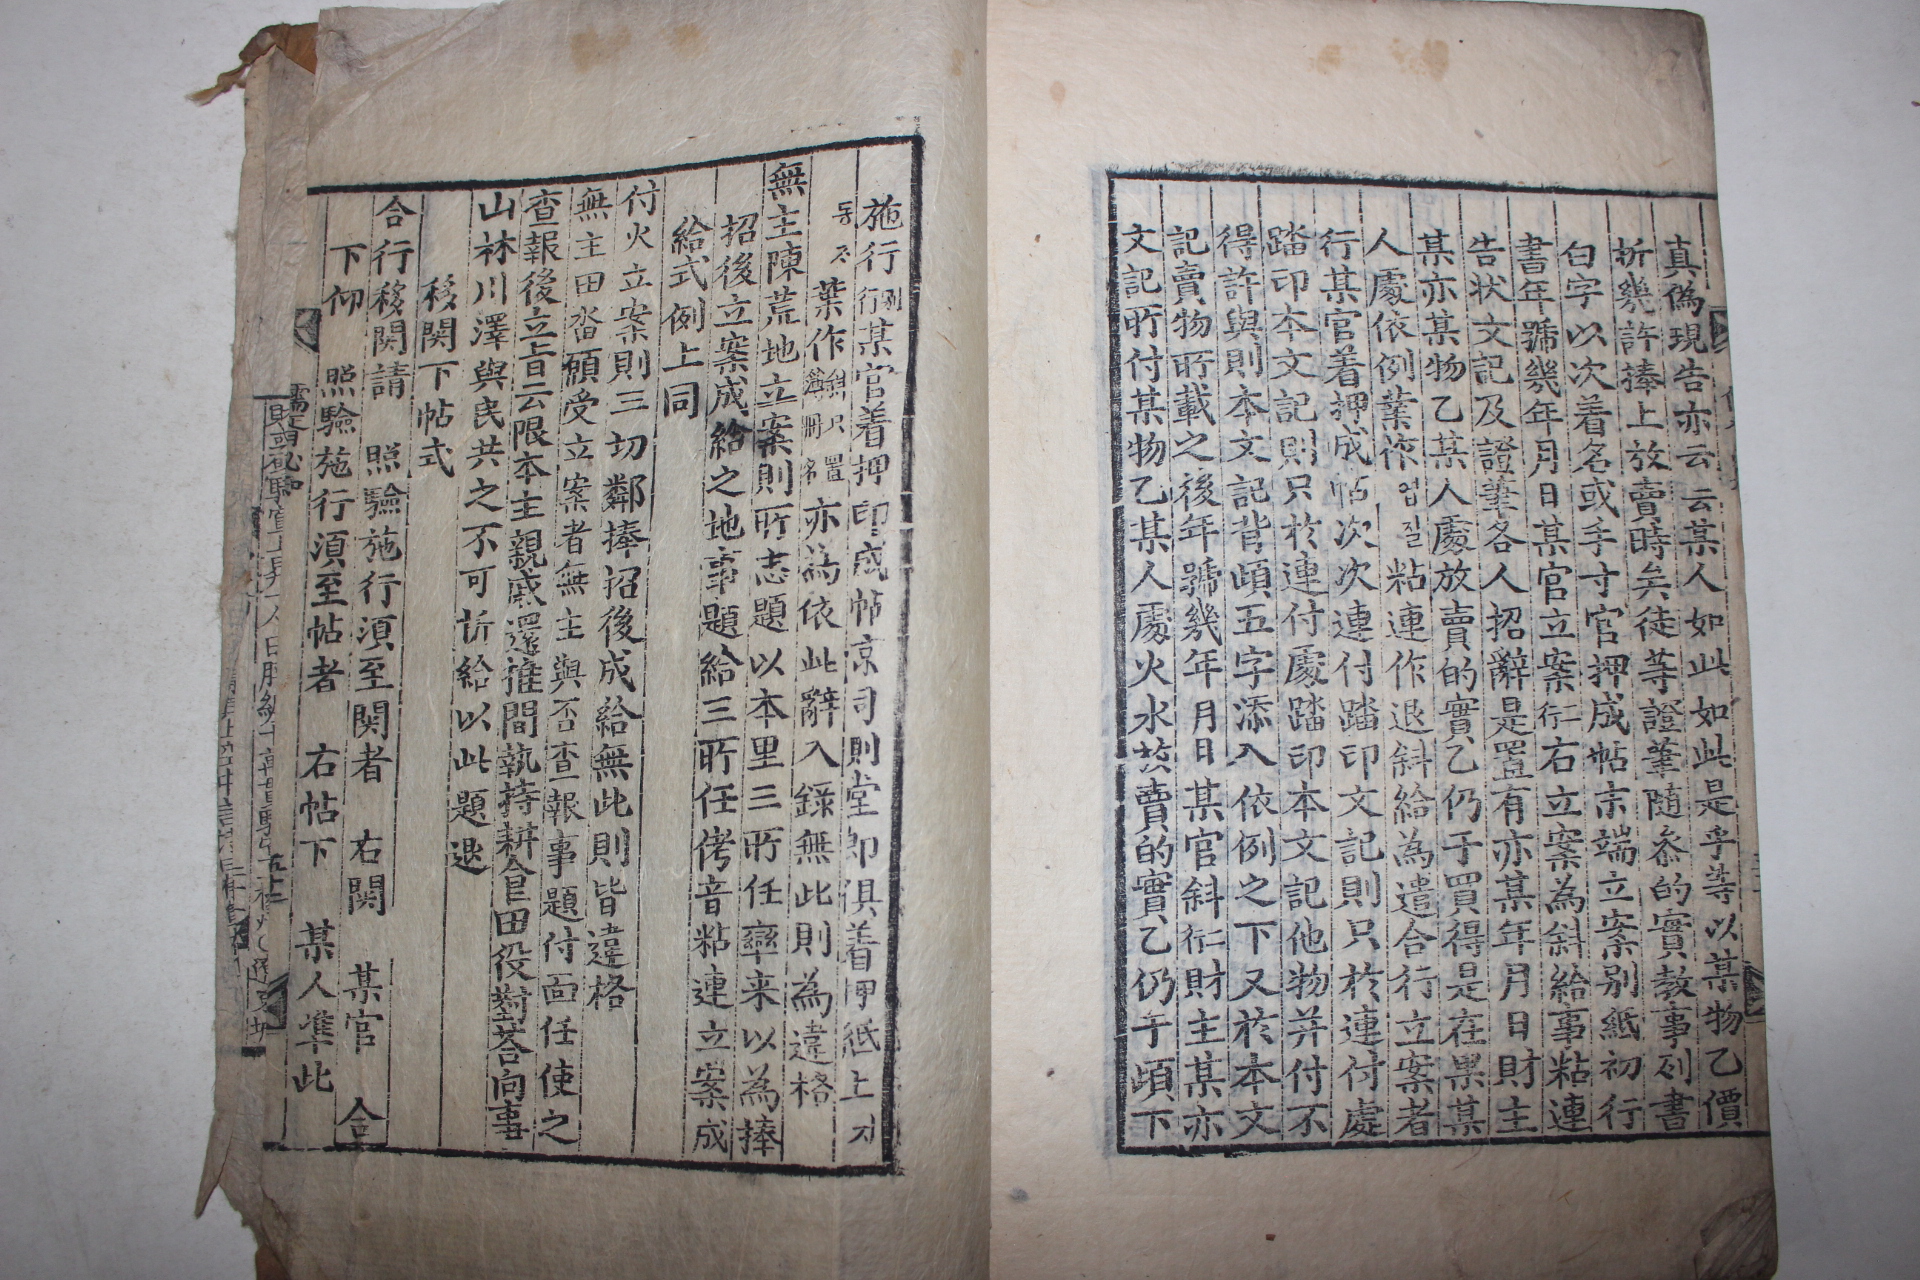 真僞現告亦云云某人如此如此是乎等以某物乙價
折幾許捧上放賣時矣徒等證筆随叅的實敎事列書
白字以次着名或手寸官押成帖京端立案别紙初行
書年號幾年月日某官立案行右立案為斜給事粘連
告狀文記及證筆各人招辭是置有亦某年月日財主
某亦某物乙某人處放賣的實乙仍于買得是在果某
人處依例葉作엽질粘連作退斜給為遣合行立案者
行某官着押成帖次次連付踏印文記則只於連付處
踏印本文記則只於連付處踏印本文記他物并付不
得許與則本文記皆頉五字添入依例之下又於本文
記賣物所載之後年號幾年月日某官斜行財主某亦
文記所付某物乙某人處火水等賣的實乙仍于頉下
施行行别某官着押印成帖京司則堂郎俱着押紙上
葉作亦為依此辭入錄無此則為違格
無主陳荒地立案則所志題以本里三所任率来以為捧
招後立案成給之地事題給三所任侤音粘連立案成
給式例上同
付火立案則三切鄰捧招後成給無此則皆違格
無主田畓願受立案者無主與否查報事題付面任使之
查報後立旨云限本主親戚還推間執持耕食田役對荅向事
山林川澤與民共之不可折給以此題退
移關下帖式
合行移關請 照驗施行須至関者 右関 某官 合
下仰 照驗施行須至帖者 右帖下 某人准此